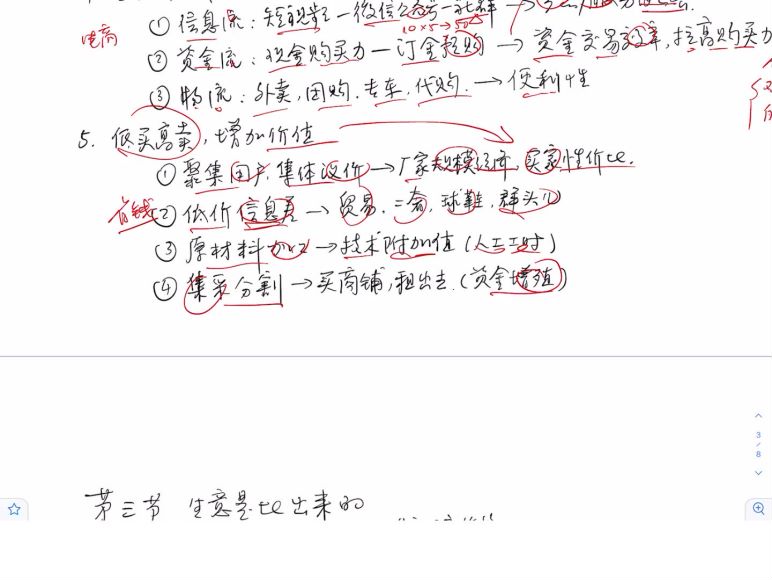 ① 信息流：短视频—微信公众号—社群→
10×5→50
电商
② 资金流：现金购买力—订金 →资金交易效率，拉高购买力
③ 物流：外卖，团购，专车，代购.→便利性
5. 低买高卖，增加价值
① 聚集用户，集体议价→厂家规模经济，买家性价比.
省钱
② 低价信息差→贸易，二奢，球鞋，群头儿
③ 原材料加工→技术附加值（人工工时）
④ 集采分割→买商铺，租出去.（资金增殖）
3
/
8
第三节 生意是比出来的